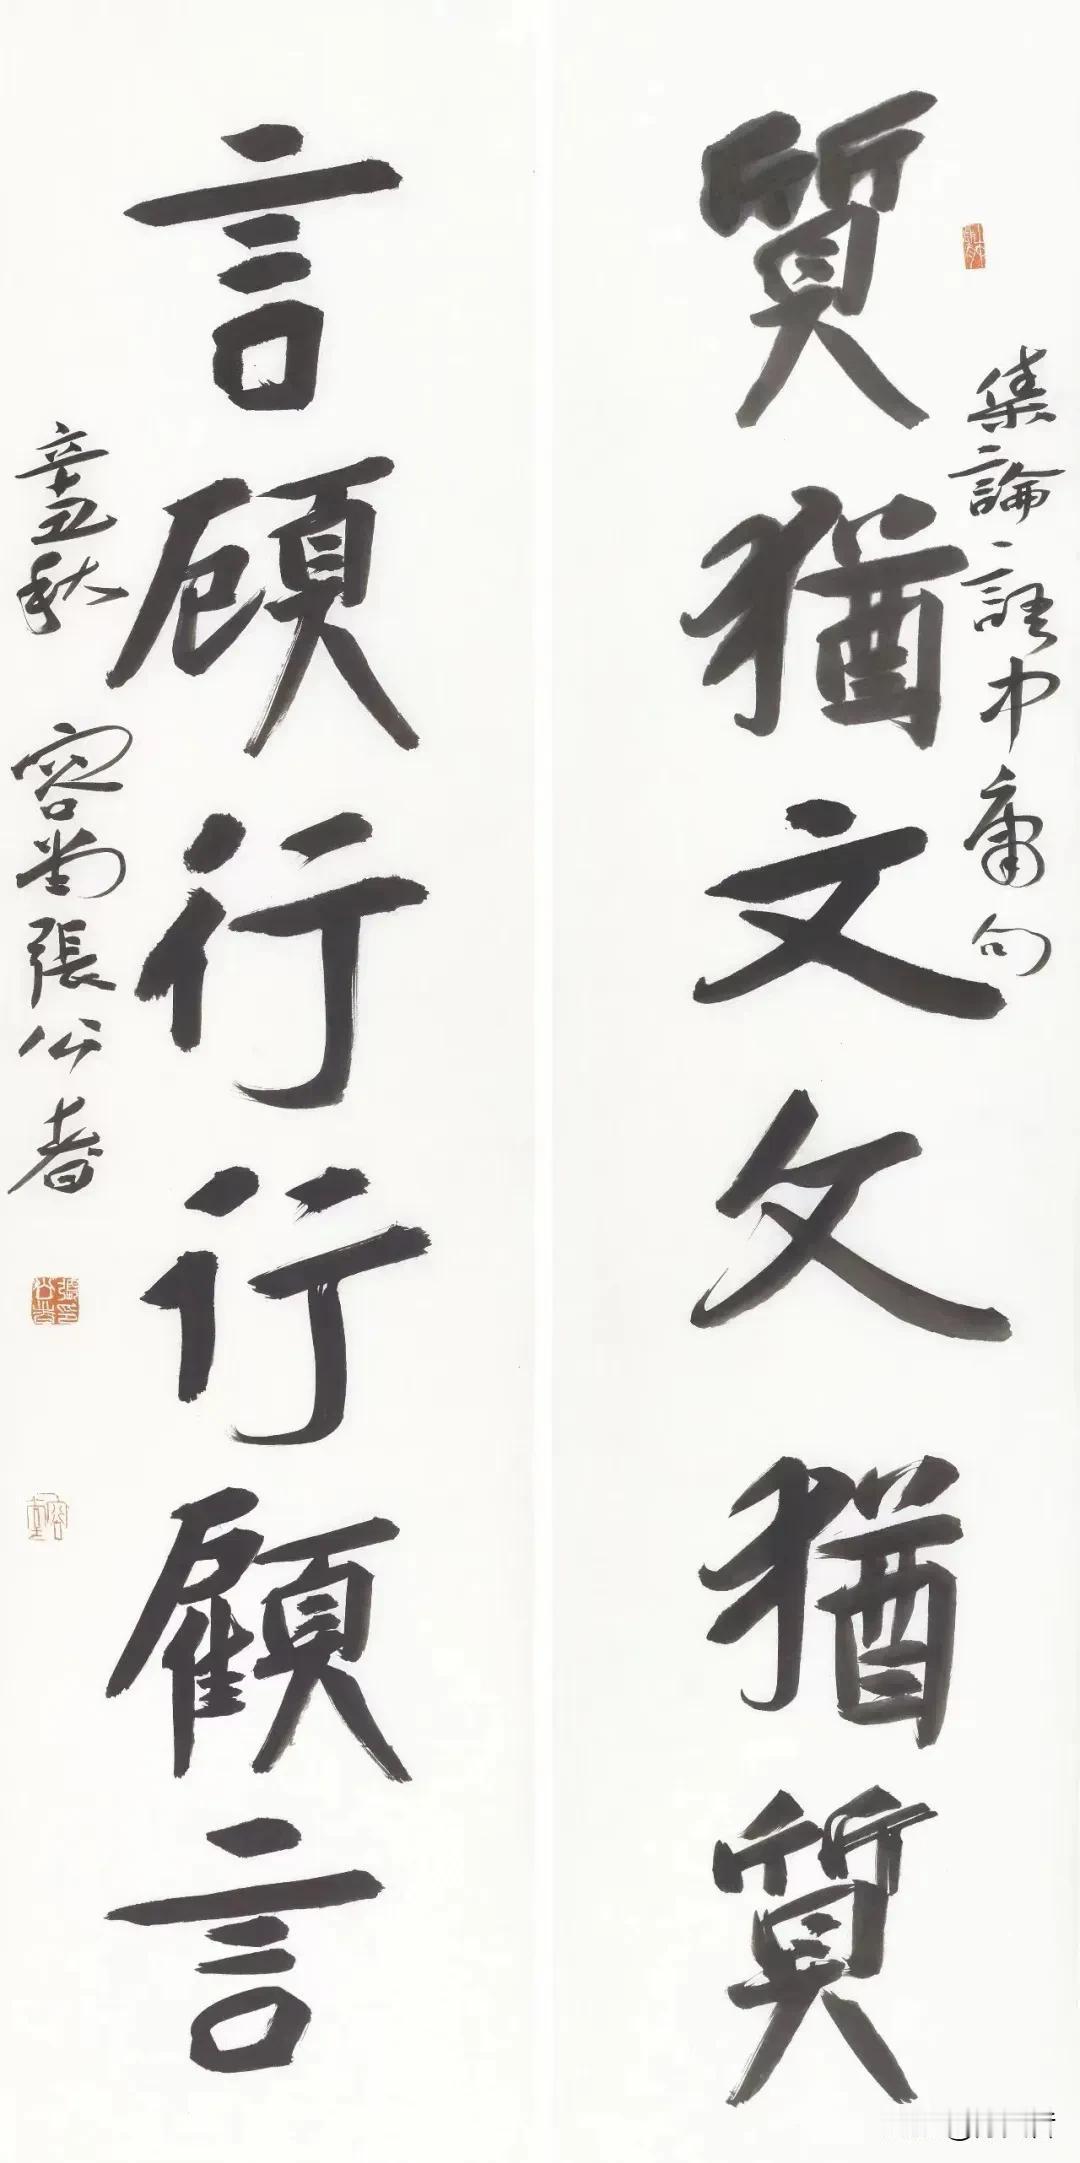 集論語中庸句
質猶文文猶質
言顧行行顧言
辛丑秋 容堂張公者